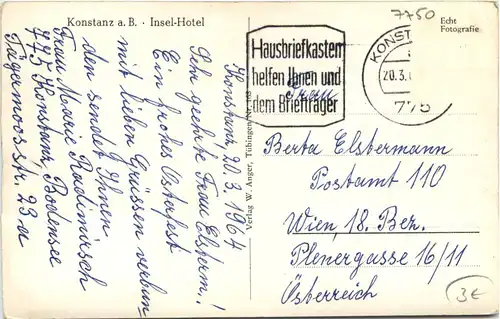 Konstanz a. B. · Insel-Hotel
7750
Echt
Fotografie
Hausbriefkasten
helfen Ihnen und
dem Briefträger
KONST
20.3.
775
Verlag W. Anger, Tübingen
Konstanz, 20.3.1964
Seh geehrte Frau Elsterm.!
Ein frohes Osterfest
mit lieben Grüssen verbun-
den sendet Ihnen
Frau Marie Radimirsch
775 Konstanz, Bodensee
Tägermoosstr. 23a
Frau
Berta Elstermann
Postamt 110
Wien, 18. Bez.
Plenergasse 16/11
Österreich
3€